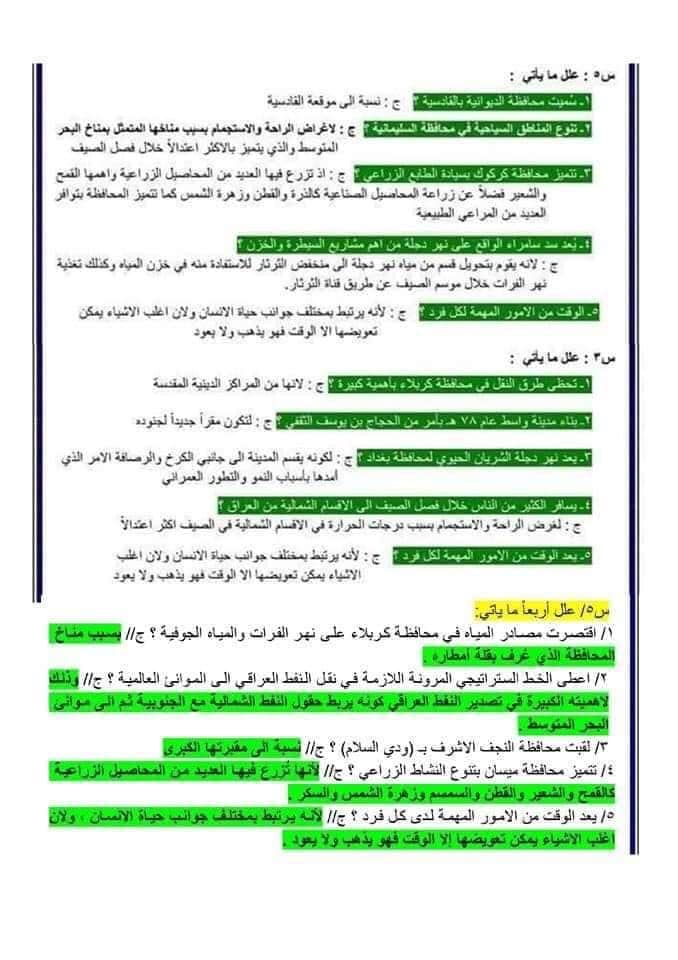 س٥ : علل ما يأتي :
١- سُميت محافظة الديوانية بالقادسية ؟ ج : نسبة الى موقعة القادسية
٢- تنوع المناطق السياحية في محافظة السليمانية ؟ ج : لاغراض الراحة والاستجمام بسبب مناخها المتمثل بمناخ البحر
المتوسط والذي يتميز بالاكثر اعتدالاً خلال فصل الصيف
٣- تتميز محافظة كركوك بسيادة الطابع الزراعي ؟ ج : اذ تزرع فيها العديد من المحاصيل الزراعية واهمها القمح
والشعير فضلاً عن زراعة المحاصيل الصناعية كالذرة والقطن وزهرة الشمس كما تتميز المحافظة بتوافر
العديد من المراعي الطبيعية
٤- يُعد سد سامراء الواقع على نهر دجلة من اهم مشاريع السيطرة والخزن ؟
ج : لانه يقوم بتحويل قسم من مياه نهر دجلة الى منخفض الثرثار للاستفادة منه في خزن المياه وكذلك تغذية
نهر الفرات خلال موسم الصيف عن طريق قناة الثرثار.
٥- الوقت من الامور المهمة لكل فرد ؟ ج : لأنه يرتبط بمختلف جوانب حياة الانسان ولان اغلب الاشياء يمكن
تعويضها الا الوقت فهو يذهب ولا يعود
س٣ : علل ما يأتي :
١- تحظى طرق النقل في محافظة كربلاء بأهمية كبيرة ؟ ج : لانها من المراكز الدينية المقدسة
٢- بناء مدينة واسط عام ٧٨ هـ بأمر من الحجاج بن يوسف الثقفي ؟ ج : لتكون مقراً جديداً لجنوده
٣- يعد نهر دجلة الشريان الحيوي لمحافظة بغداد ؟ ج : لكونه يقسم المدينة الى جانبي الكرخ والرصافة الامر الذي
أمدها بأسباب النمو والتطور العمراني
٤- يسافر الكثير من الناس خلال فصل الصيف الى الاقسام الشمالية من العراق ؟
ج : لغرض الراحة والاستجمام بسبب درجات الحرارة في الاقسام الشمالية في الصيف اكثر اعتدالاً
٥- يعد الوقت من الامور المهمة لكل فرد ؟ ج : لأنه يرتبط بمختلف جوانب حياة الانسان ولان اغلب
الاشياء يمكن تعويضها الا الوقت فهو يذهب ولا يعود
س٥/ علل أربعاً ما ياتي:
١/ اقتصرت مصادر المياه في محافظة كربلاء على نهر الفرات والمياه الجوفية ؟ ج// بسبب مناخ
المحافظة الذي عُرف بقلة امطاره .
٢/ اعطى الخط الستراتيجي المرونة اللازمة في نقل النفط العراقي الى الموانئ العالمية ؟ ج// وذلك
لاهميته الكبيرة في تصدير النفط العراقي كونه يربط حقول النفط الشمالية مع الجنوبية ثم الى موانئ
البحر المتوسط .
٣/ لقبت محافظة النجف الاشرف بـ (ودي السلام) ؟ ج// نسبة الى مقبرتها الكبرى
٤/ تتميز محافظة ميسان بتنوع النشاط الزراعي ؟ ج// لأنها تُزرع فيها العديد من المحاصيل الزراعية
كالقمح والشعير والقطن والسمسم وزهرة الشمس والسكر .
٥/ يعد الوقت من الامور المهمة لدى كل فرد ؟ ج// لأنه يرتبط بمختلف جوانب حياة الانسان ، ولان
اغلب الاشياء يمكن تعويضها إلا الوقت فهو يذهب ولا يعود .